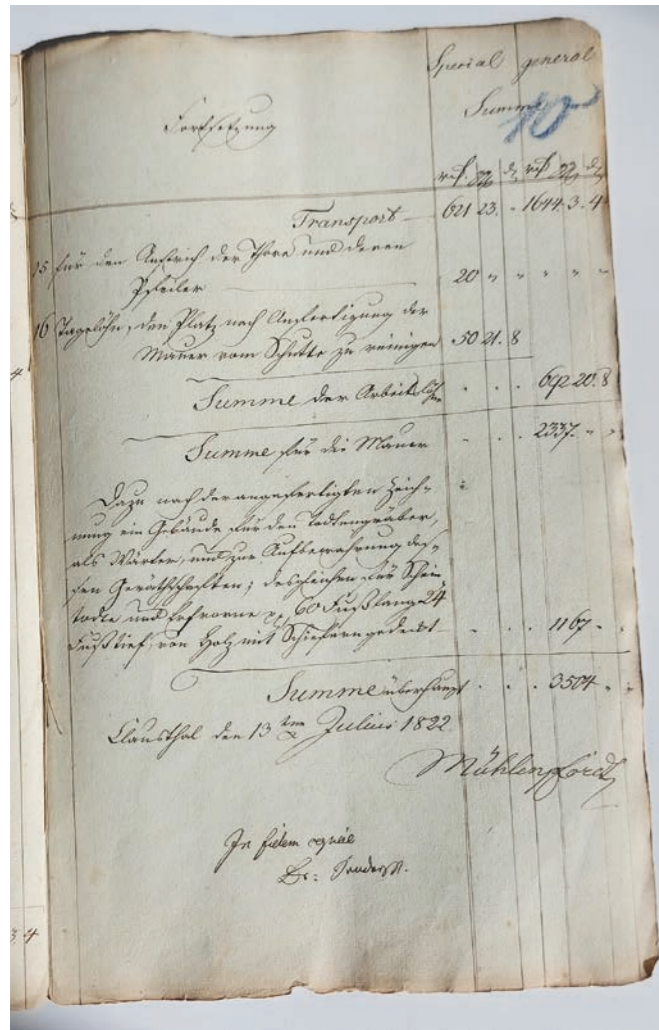 Special general
Summe
10
Fortsetzung
rt. ggr. d. rt. ggr. d.
Transport — 621 23. - 1644. 3. 4
15 für den Anstrich der Thore und deren
Pfeiler — 20 " " " " "
16 Tagelohn, den Platz nach Anfertigung der
Mauer vom Schutte zu reinigen 50 21. 8
Summe der Arbeitslöhne . . . 692 20. 8
Summe für die Mauer - . . 2337. " "
Dazu nach der angefertigten Zeich-
nung ein Gebäude für den Todtengräber,
als Wärter, und zur Aufbewahrung des-
sen Geräthschaften; desgleichen für Schein-
todte und Erfrorne pp, 60 Fuß lang 24
Fuß tief, von Holz mit Schiefern gedeckt - . . 1167 - .
Summe überhaupt . . . 3504 " "
Clausthal den 13ten Julius 1822.
Mühlenpfordt
In fidem copiae
3 4